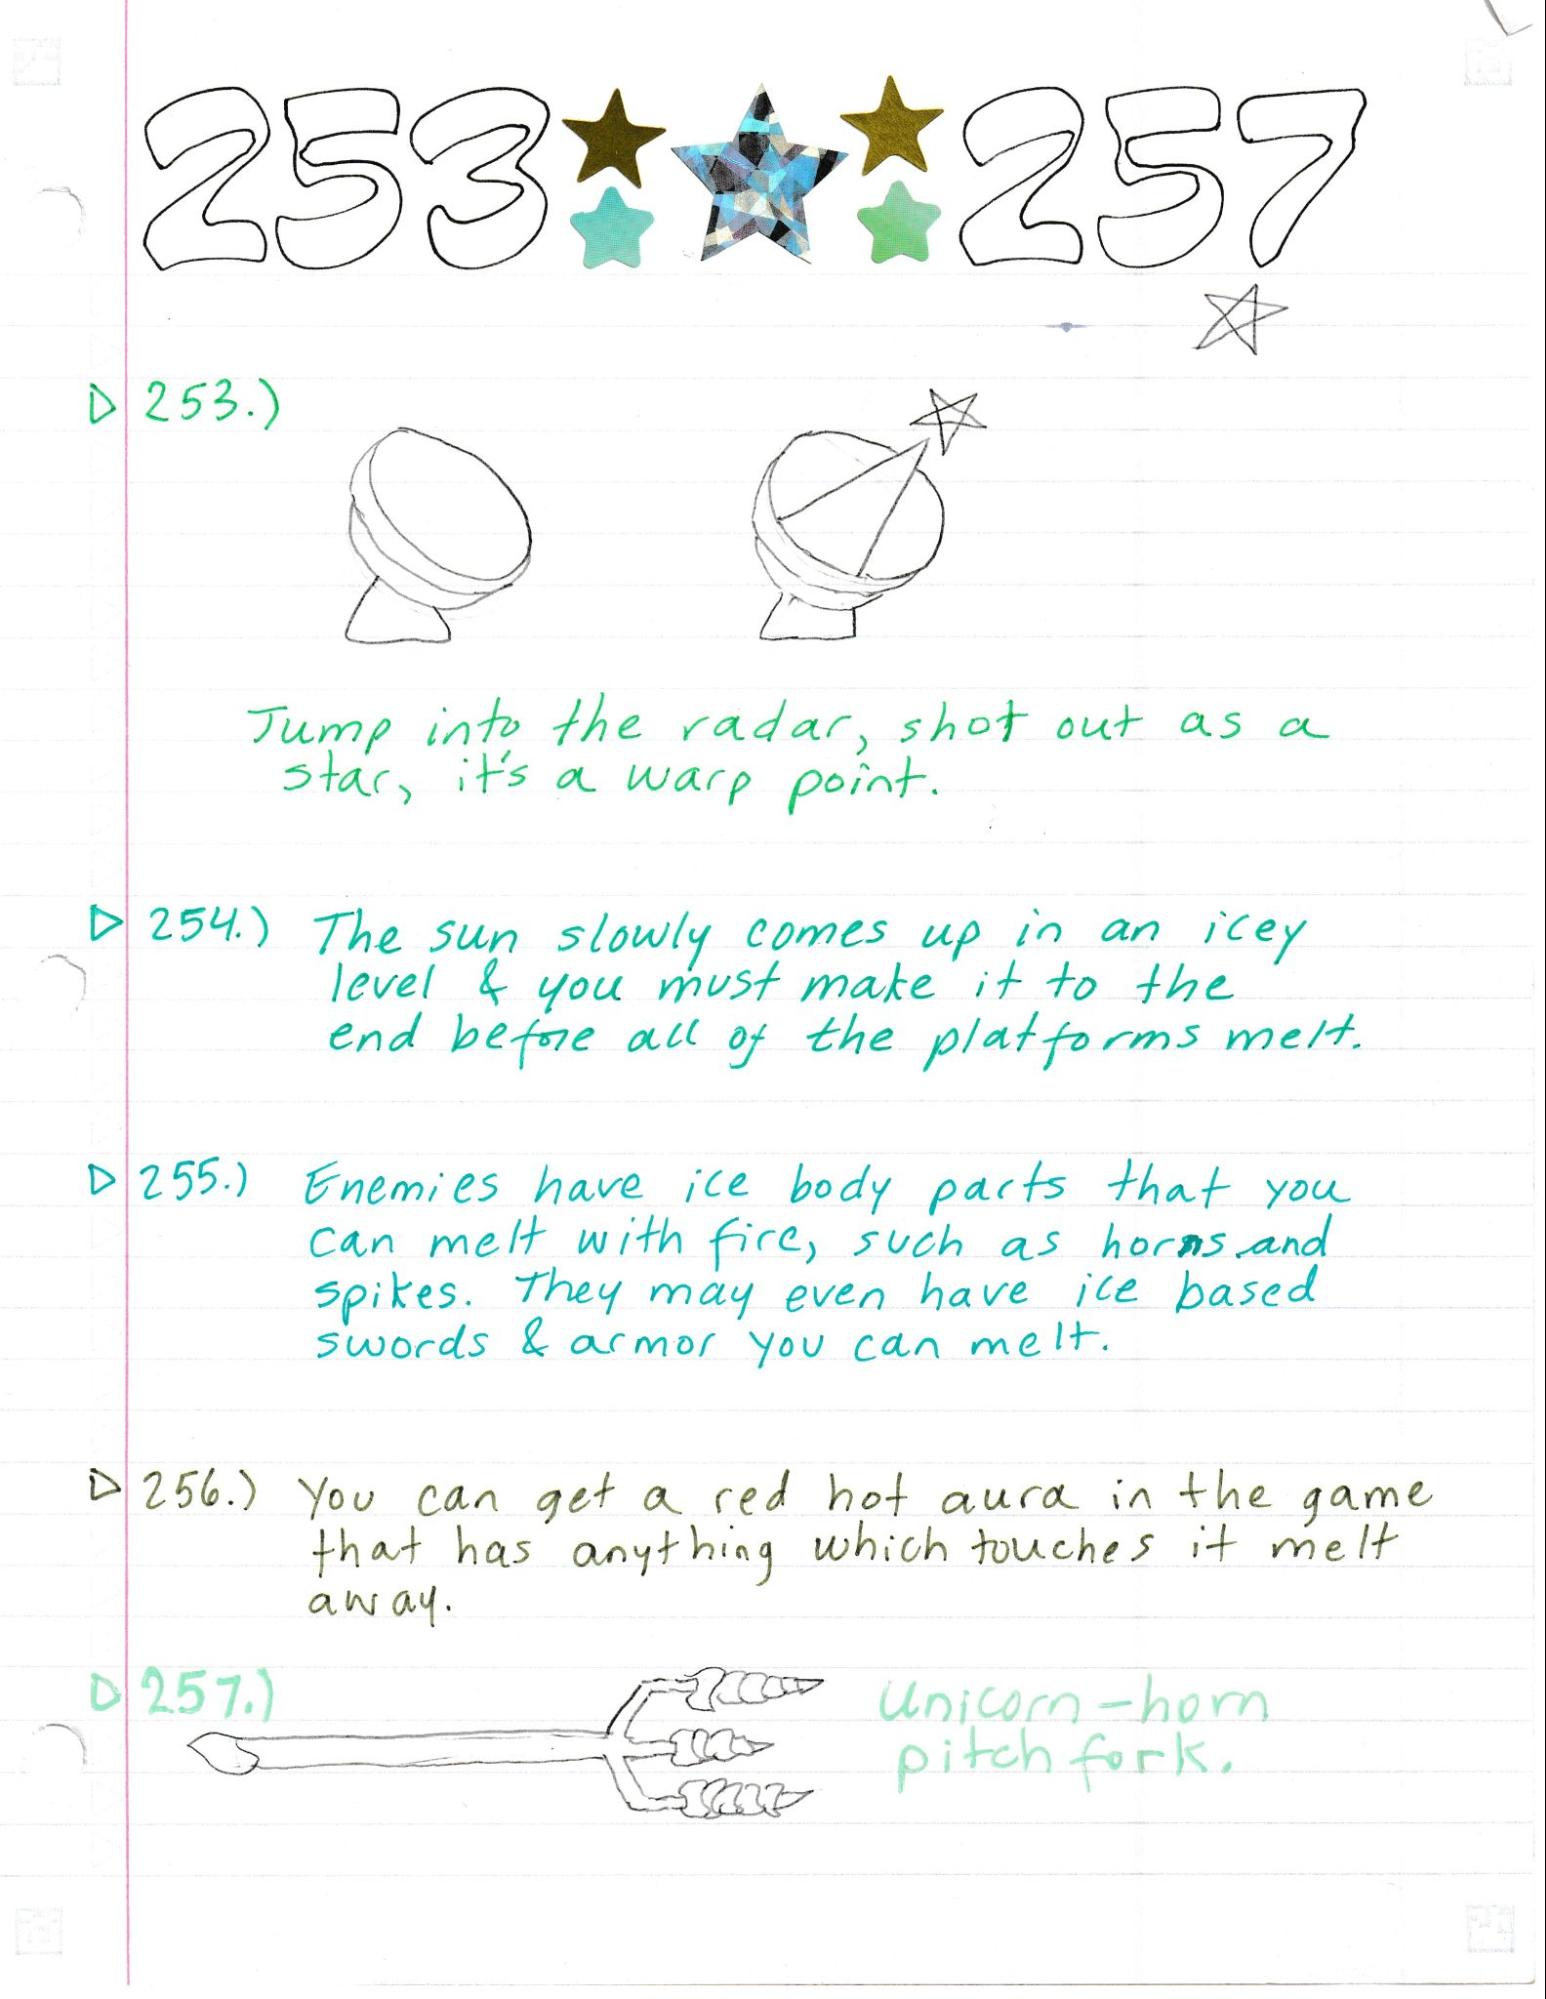 253 257
253.)
Jump into the radar, shot out as a
star, it's a warp point.
254.) The sun slowly comes up in an icey
level & you must make it to the
end before all of the platforms melt.
255.) Enemies have ice body parts that you
can melt with fire, such as horns and
spikes. They may even have ice based
swords & armor you can melt.
256.) You can get a red hot aura in the game
that has anything which touches it melt
away.
257.) Unicorn-horn
pitch fork.